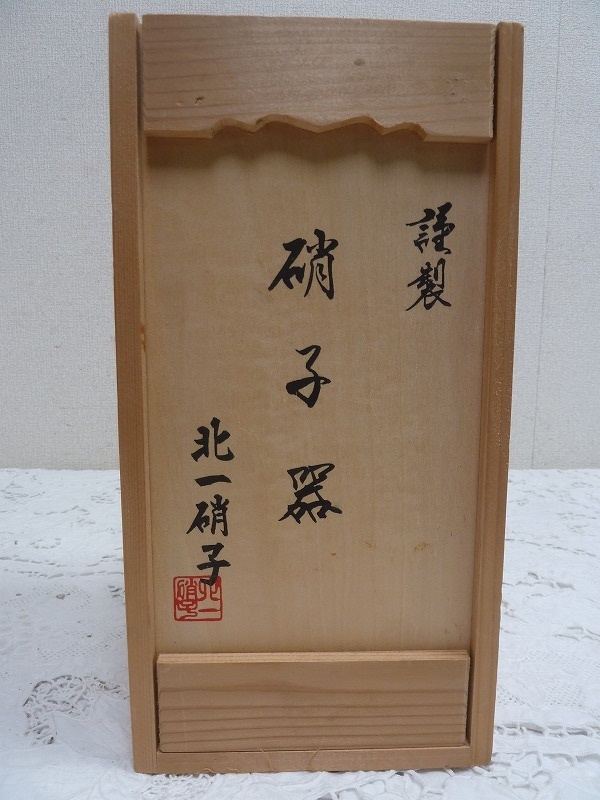 謹製
硝子器
北一硝子
北一硝子